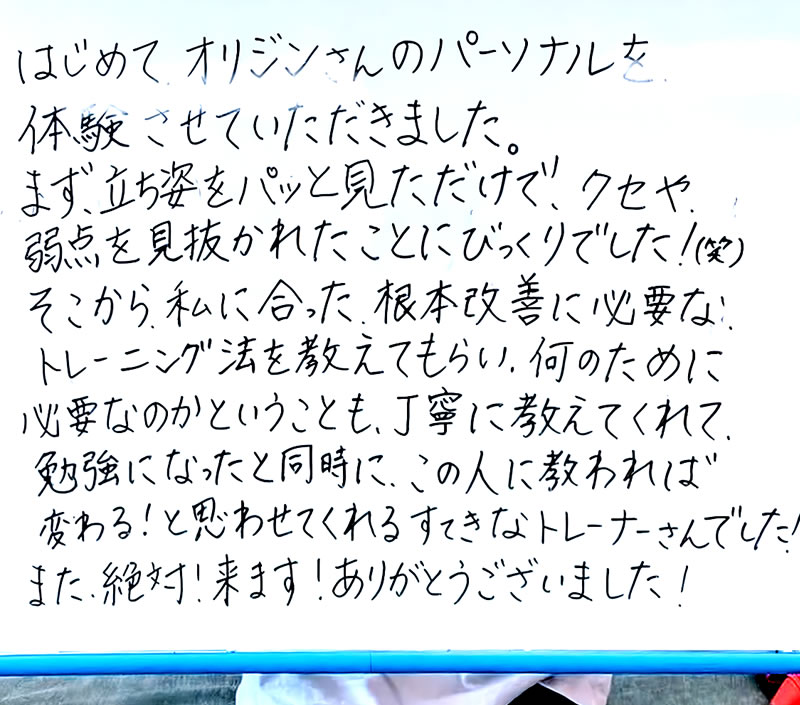 はじめて、オリジンさんのパーソナルを
体験させていただきました。
まず、立ち姿をパッと見ただけで、クセや
弱点を見抜かれたことにびっくりでした！(笑)
そこから、私に合った、根本改善に必要な
トレーニング法を教えてもらい、何のために
必要なのかということも、丁寧に教えてくれて、
勉強になったと同時に、この人に教われば
変わる！と思わせてくれるすてきなトレーナーさんでした！
また、絶対！来ます！ありがとうございました！